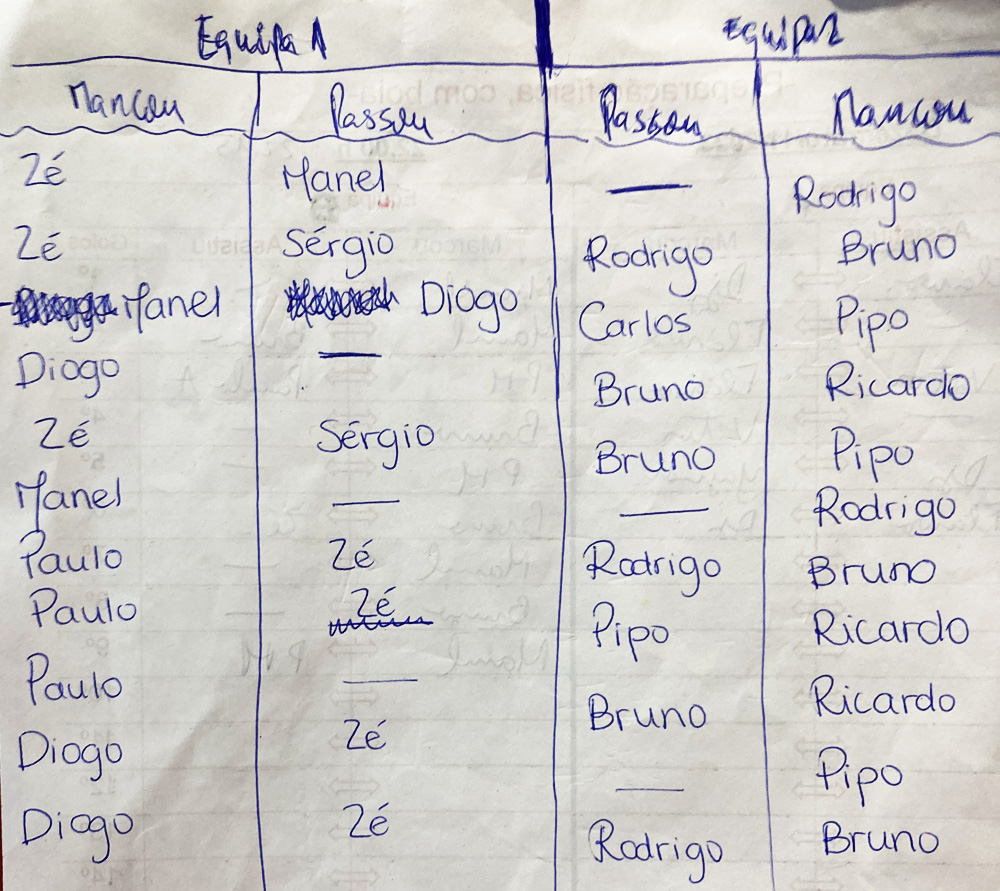 Equipa 1 Equipa 2
Marcou Passou Passou Marcou
Zé Manel — Rodrigo
Zé Sérgio Rodrigo Bruno
Manel Diogo Carlos Pipo
Diogo — Bruno Ricardo
Zé Sérgio Bruno Pipo
Manel — — Rodrigo
Paulo Zé Rodrigo Bruno
Paulo Zé Pipo Ricardo
Paulo — Bruno Ricardo
Diogo Zé — Pipo
Diogo Zé Rodrigo Bruno